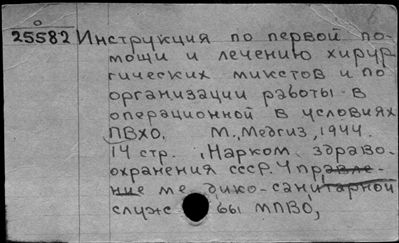 25582 Инструкция по первой по-
мощи и лечению хирур-
гических микстов и по
организации работы в
операционной в условиях
ПВХО. М., Медгиз, 1944.
14 стр. (Нарком. здраво-
охранения СССР. Управле-
ние медико-санитарной
служ бы МПВО,